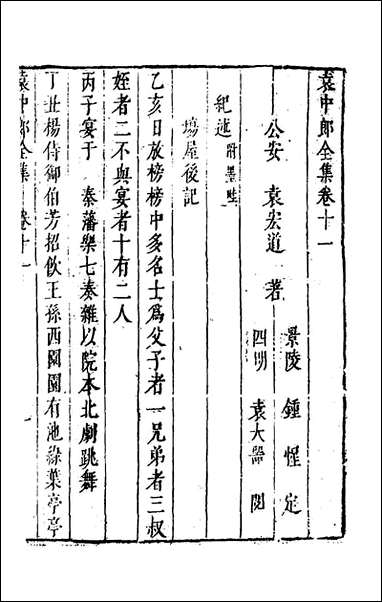 袁中郎全集卷十一
景陵　鍾惺　定
公安　袁宏道　著
四明　袁大　閱
紀述附墨畦
場屋後記
乙亥日放榜榜中多名士爲父子者一兄弟者三叔
姪者二不與宴者十有二人
丙子宴于　秦藩樂七奏雜以院本北劇跳舞
丁丑楊侍御伯芳招飲王孫西園園有池綠葉亭亭
袁中郎全集　卷十一　一